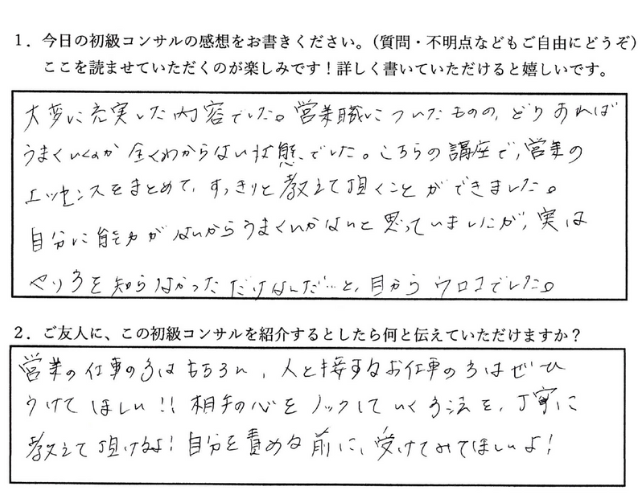 1．今日の初級コンサルの感想をお書きください。（質問・不明点などもご自由にどうぞ）
ここを読ませていただくのが楽しみです！詳しく書いていただけると嬉しいです。
大変に充実した内容でした。営業職についたものの、どうあれば
うまくいくのか全くわからない状態でした。こちらの講座で、営業の
エッセンスをまとめて、すっきりと教えて頂くことができました。
自分に能力がないからうまくいかないと思っていましたが、実は
やり方を知らなかっただけなんだ…と、目からウロコでした。
2．ご友人に、この初級コンサルを紹介するとしたら何と伝えていただけますか？
営業の仕事の方はもちろん、人と接するお仕事の方はぜひ
うけてほしい!! 相手の心をノックしていく方法を、丁寧に
教えて頂けるよ！自分を責める前に、受けてみてほしいよ！